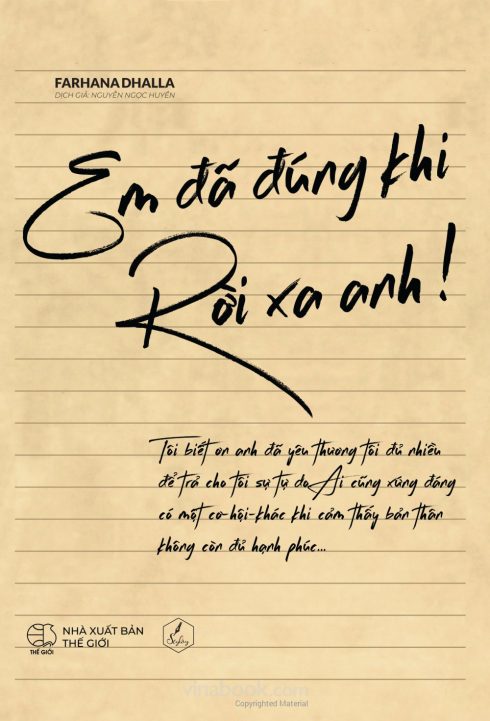 FARHANA DHALLA
DỊCH GIẢ: NGUYỄN NGỌC HUYỀN
Em đã đúng khi
Rời xa anh!
Tôi biết ơn anh đã yêu thương tôi đủ nhiều
để trả cho tôi sự tự do. Ai cũng xứng đáng
có một cơ-hội-khác khi cảm thấy bản thân
không còn đủ hạnh phúc...
THẾ GIỚI
NHÀ XUẤT BẢN
THẾ GIỚI
Skybooks
vinabook.com
Copyrighted Material